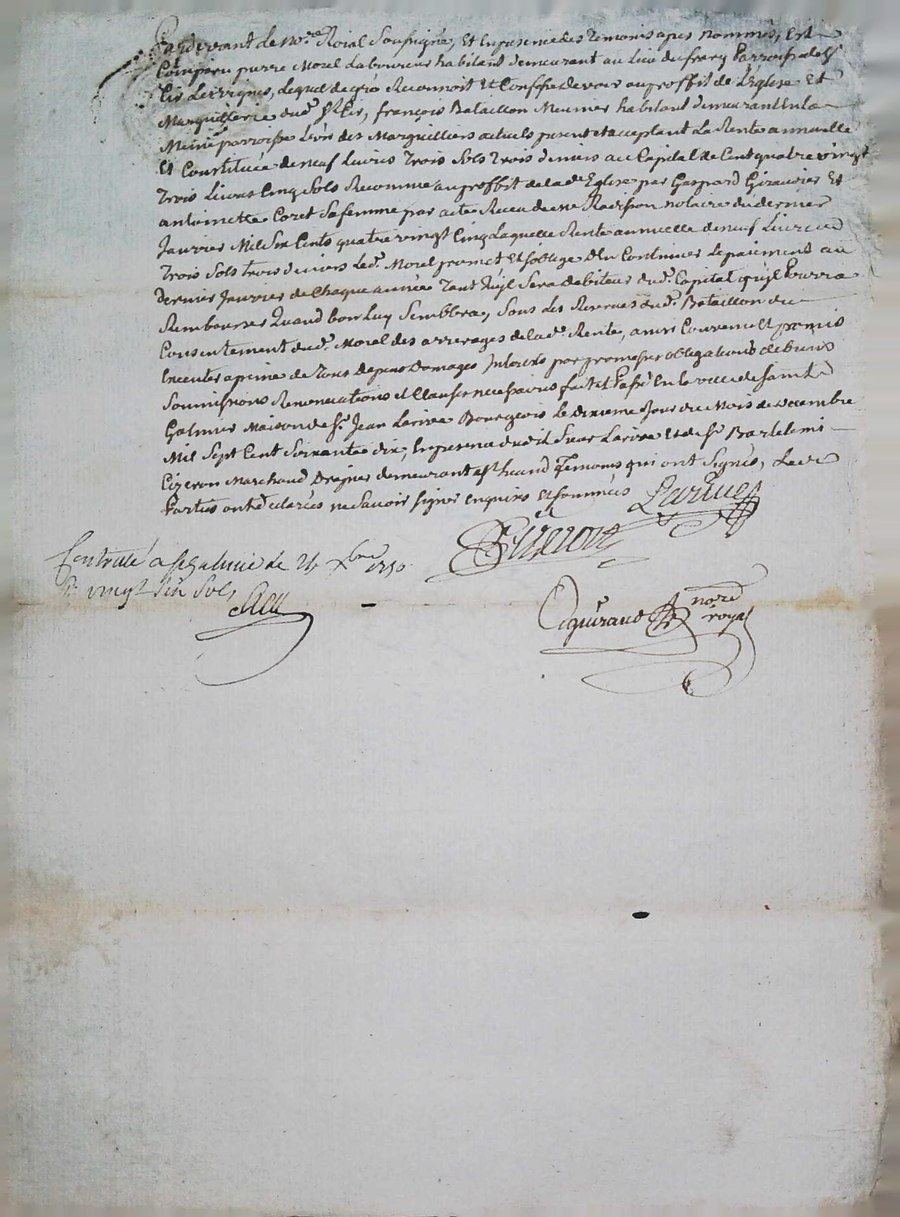 Pardevant le No.re Roial Soussigné, Et En presence des Temoins apres nommés, Est
Comparu pierre Morel Laboureur habitant demeurant au Lieu de Parroisse de St
Cir Les vignes, lequel de gré Reconnoit Et Confesse devoir au proffit de L'Eglise Et
Marguillerie dud. St Cir, françois Bataillon Meunier habitant demeurant En la
Meme parroisse L'un des Marguilliers actuels present et acceptant La Rente annuelle
Et Constituée de neuf Livres Trois Sols Trois deniers au Capital de Cent quatre vingt
Trois Livres Cinq Sols Reconnue au proffit de lad. Eglise par Gaspard Et
antoinette Coret Sa femme par acte Receu de Me notaire du dernier
Janvier Mil Six Cents quatre vingt Cinq Laquelle Rente annuelle de neuf Livres
Trois Sols trois deniers Led. Morel promet Et s'oblige d'En Continuer Le paiement au
dernier Janvier de Chaque année Tant qu'il Sera debiteur dud. Capital qu'il Pourra
Rembourser Quand bon Luy Semblera, Sous Les Reserves dud. Bataillon du
Consentement dud. Morel des arrerages de lad. Rente, ainsi Convenu Et promis
Executer a peine de Tous depens Domages Interets par promesses obligations de biens
Soumissions Renonciations et Clauses necessaires fait Et Passé En la ville de Saint
Galmier Maison de Sr. Jean Larive Bourgeois Le dixieme Jour du Mois de Decembre
Mil Sept Cent Soixante dix, En presence dudit Sieur Larive Et de Sr. Bartelemi
Cizeron Marchand demeurant Temoins qui ont Signés, Les
Parties ont declarées ne Savoir Signer enquises Et Sommées
Larive
Cizeron
Controllé a St Galmier le 24 Xbre
R. vingt six Sols
Guiraud
nore
royal